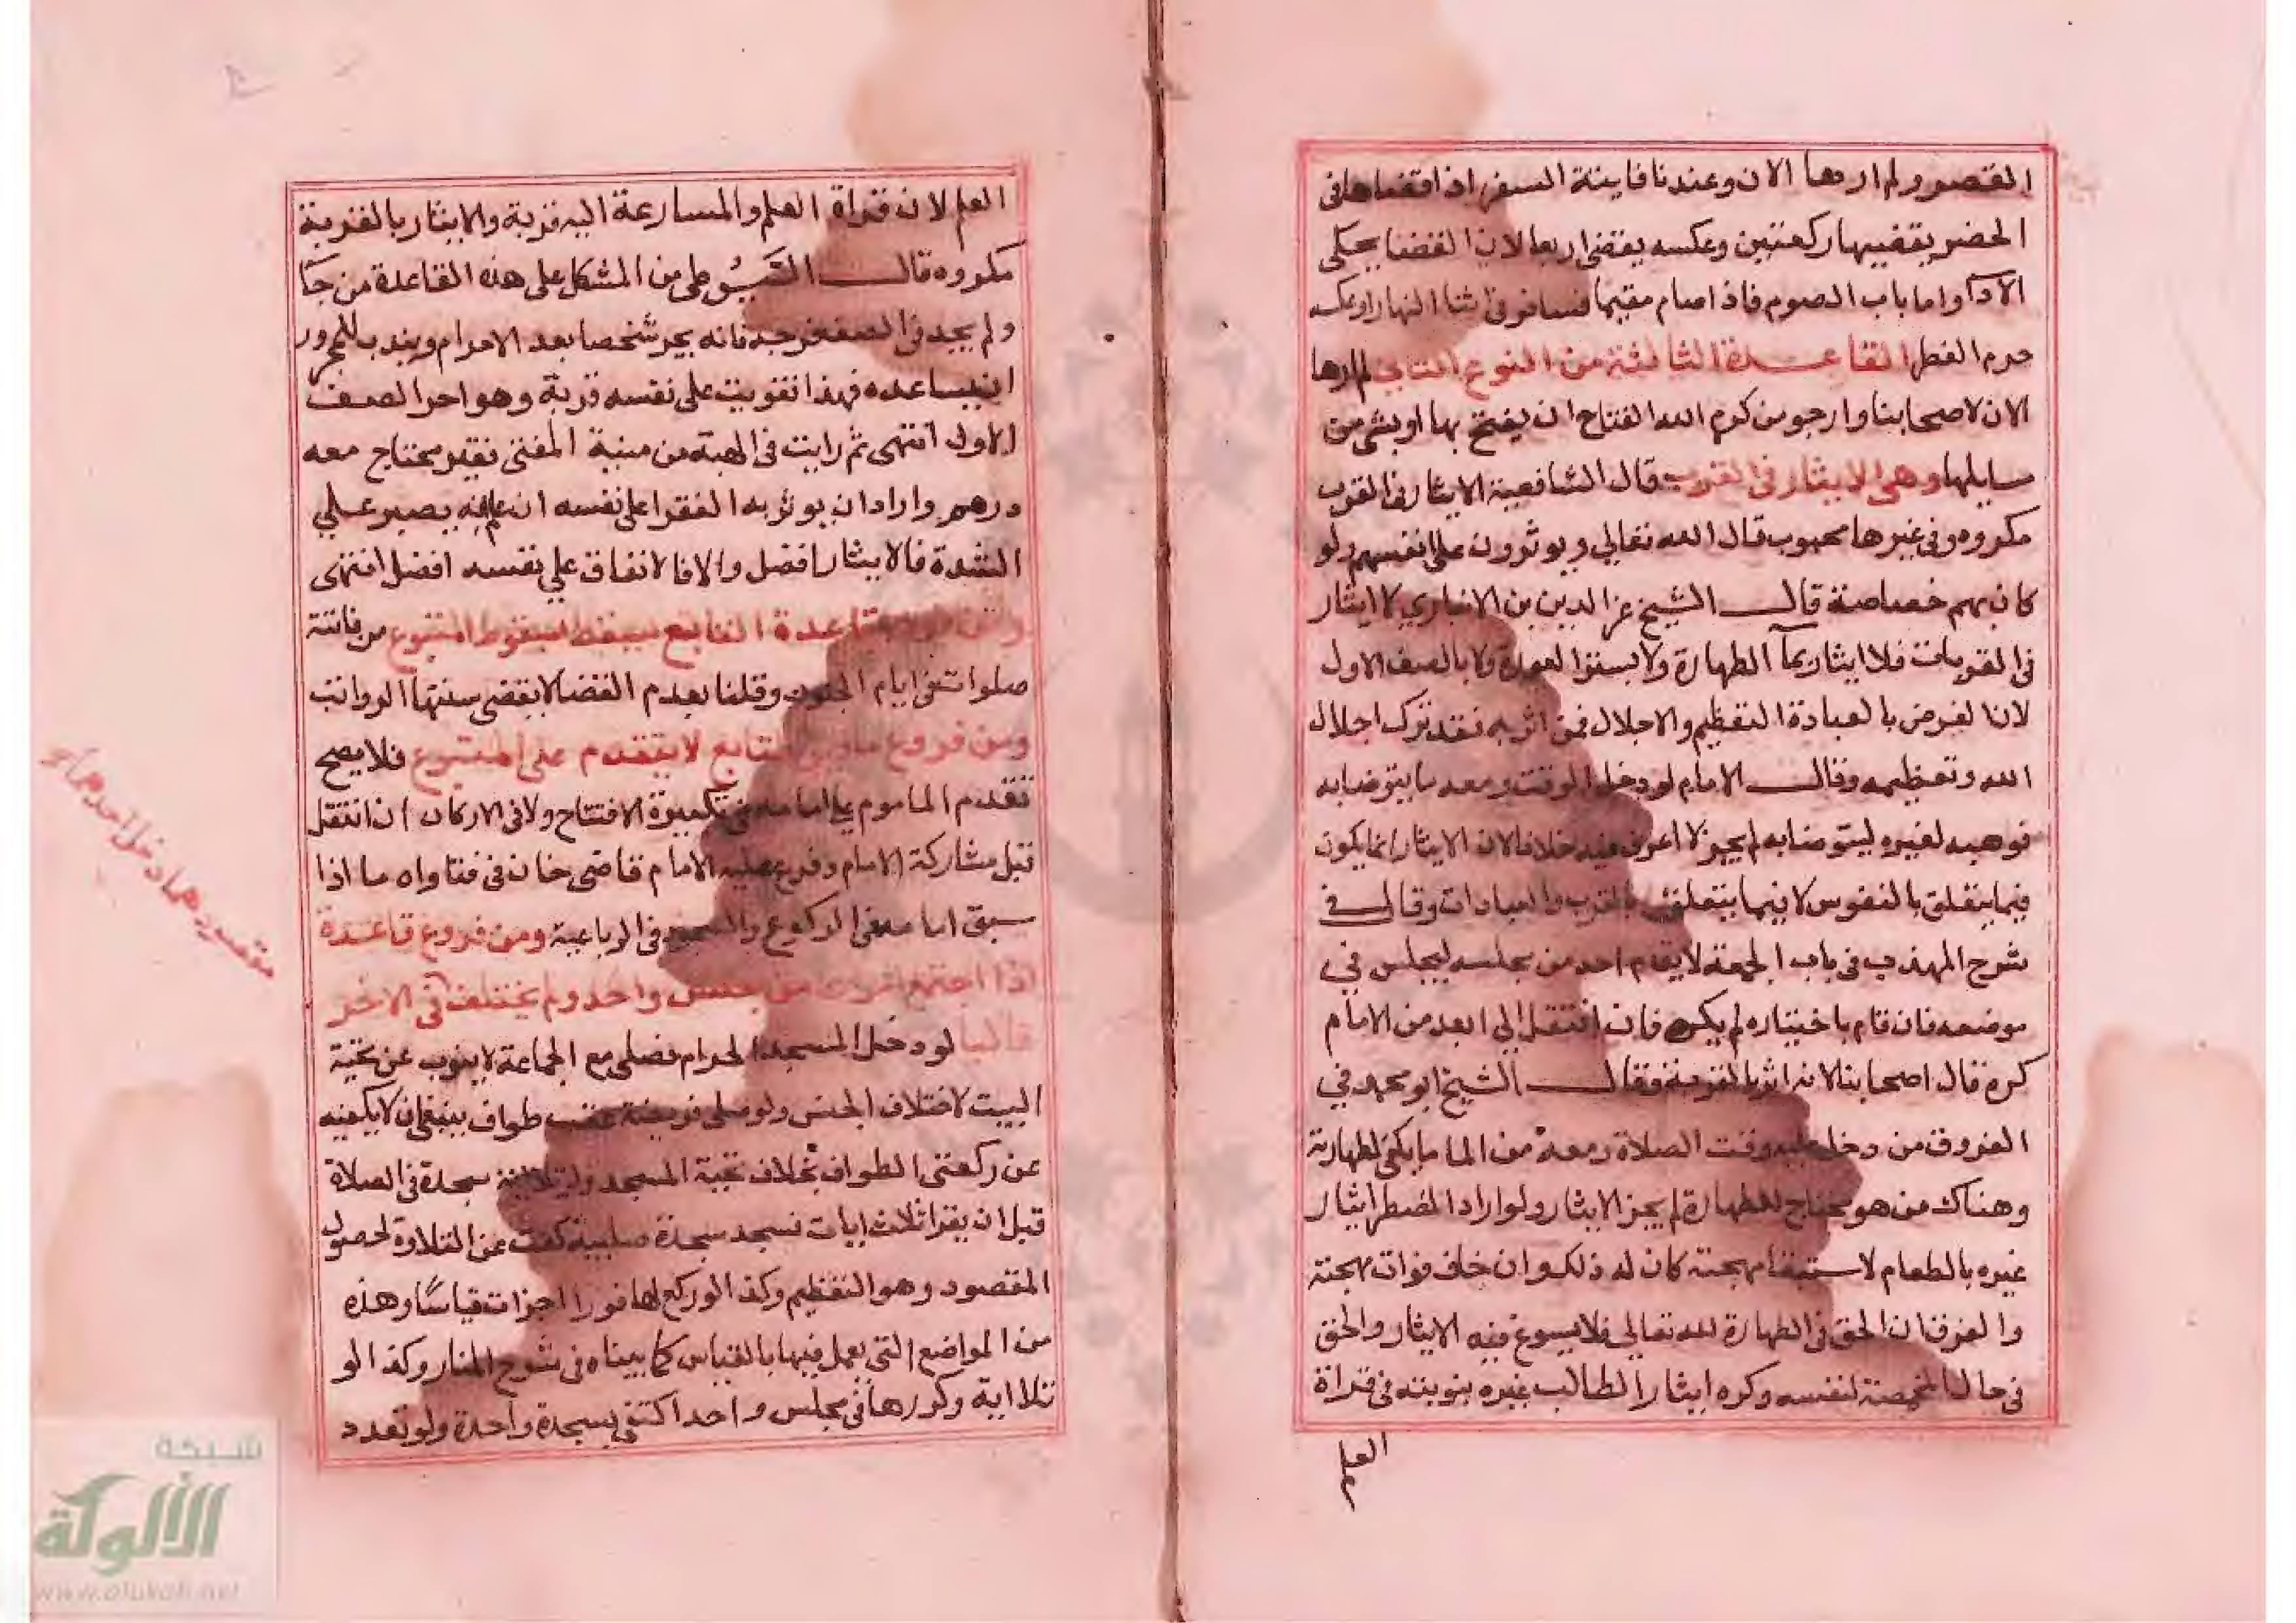 القصر ولم ارها الان وعندنا فايتة السفر اذا قضاها في
الحضر يقضيها ركعتين وعكسه يقضي اربعا لان القضا يحكي
الادآ واما باب الصوم فاذا صام مقيما فسافر في اثنا النهار او عكسه
حرم الفطر القاعدة الثالثة من النوع الثاني لم ارها
الان لاصحابنا وارجو من كرم الله الفتاح ان يفتح بها او بشي من
مسايلها وهي الايثار في القرب قال الشافعية الايثار في القرب
مكروه وفي غيرها محبوب قال الله تعالي ويوثرون على انفسهم ولو
كان بهم خصاصة قال الشيخ عز الدين بن الانباري لا ايثار
في القربات فلا ايثار بمآ الطهارة ولا بستر العورة ولا بالصف الاول
لان الغرض بالعبادة التعظيم والاجلال فمن اثر به فقد ترك اجلال
الله وتعظيمه وقال الامام لو دخل الوقت ومعه ما يتوضا به
فوهبه لغيره ليتوضا به لم يجز لا اعرف فيه خلافا لان الايثار انما يكون
فيما يتعلق بالنفوس لا فيما يتعلق بالقرب والعبادات وقال في
شرح المهذب في باب الجمعة لا يقام احد من مجلسه ليجلس في
موضعه فان قام باختياره لم يكره فان انتقل الي ابعد من الامام
كره قال اصحابنا لانه اثر بالقربة وقال الشيخ ابو محمد في
الفروق من دخل عليه وقت الصلاة ومعه من الما ما يكفي لطهارته
وهناك من هو محتاج للطهارة لم يجز الايثار ولو اراد المضطر ايثار
غيره بالطعام لاستبقا مهجته كان له ذلك وان خاف فوات مهجته
والفرق ان الحق في الطهارة لله تعالي فلا يسوغ فيه الايثار والحق
في حال المخمصة لنفسه وكره ايثار الطالب غيره بنوبته في قراة
العلم
العلم لان قراة العلم والمسارعة اليه قربة والايثار بالقربة
مكروه قال السيوطي من المشكل على هذه القاعدة من جآ
ولم يجد في الصف فرجة فانه يجر شخصا بعد الاحرام ويندب للمجرور
ان يساعده فهذا تفويت على نفسه قربة وهو اجر الصف
الاول انتهى ثم رايت في الهبة من منية المفتي فقير محتاج معه
درهم واراد ان يوثر به الفقرا على نفسه ان علم انه يصبر علي
الشدة فالايثار افضل والا فالانفاق علي نفسه افضل انتهى
قاعدة التابع يسقط بسقوط المتبوع من فاتته
صلوات في ايام الجنون وقلنا بعدم القضا لا يقضي سنتها الرواتب
ومن فروع التابع لا يتقدم على المتبوع فلا يصح
تقدم الماموم على امامه في تكبيرة الافتتاح ولا في الاركان ان انتقل
قبل مشاركة الامام وفرع عليه الامام قاضي خان في فتاواه ما اذا
سبق امامه في الركوع والسجود في الرباعية ومن فروع قاعدة
اذا اجتمع امران من جنس واحد ولم يختلف في الاخر
غالبا لو دخل المسجد الحرام فصلى مع الجماعة لا ينوب عن تحية
البيت لاختلاف الجنس ولو صلى فريضة عقب طواف ينبغي ان لا يكفيه
عن ركعتي الطواف بخلاف تحية المسجد ولو تلا اية سجدة في الصلاة
قبل ان يقرا ثلاث ايات فسجد سجدة صلبية كفت عن التلاوة لحصول
المقصود وهو التعظيم وكذا لو ركع لها فورا اجزات قياسا وهذه
من المواضع التي يعمل فيها بالقياس كما بيناه في شرح المنار وكذا لو
تلا اية وكررها في مجلس واحد اكتفي بسجدة واحدة ولو تعدد
شبكة
الألوكة
www.alukah.net